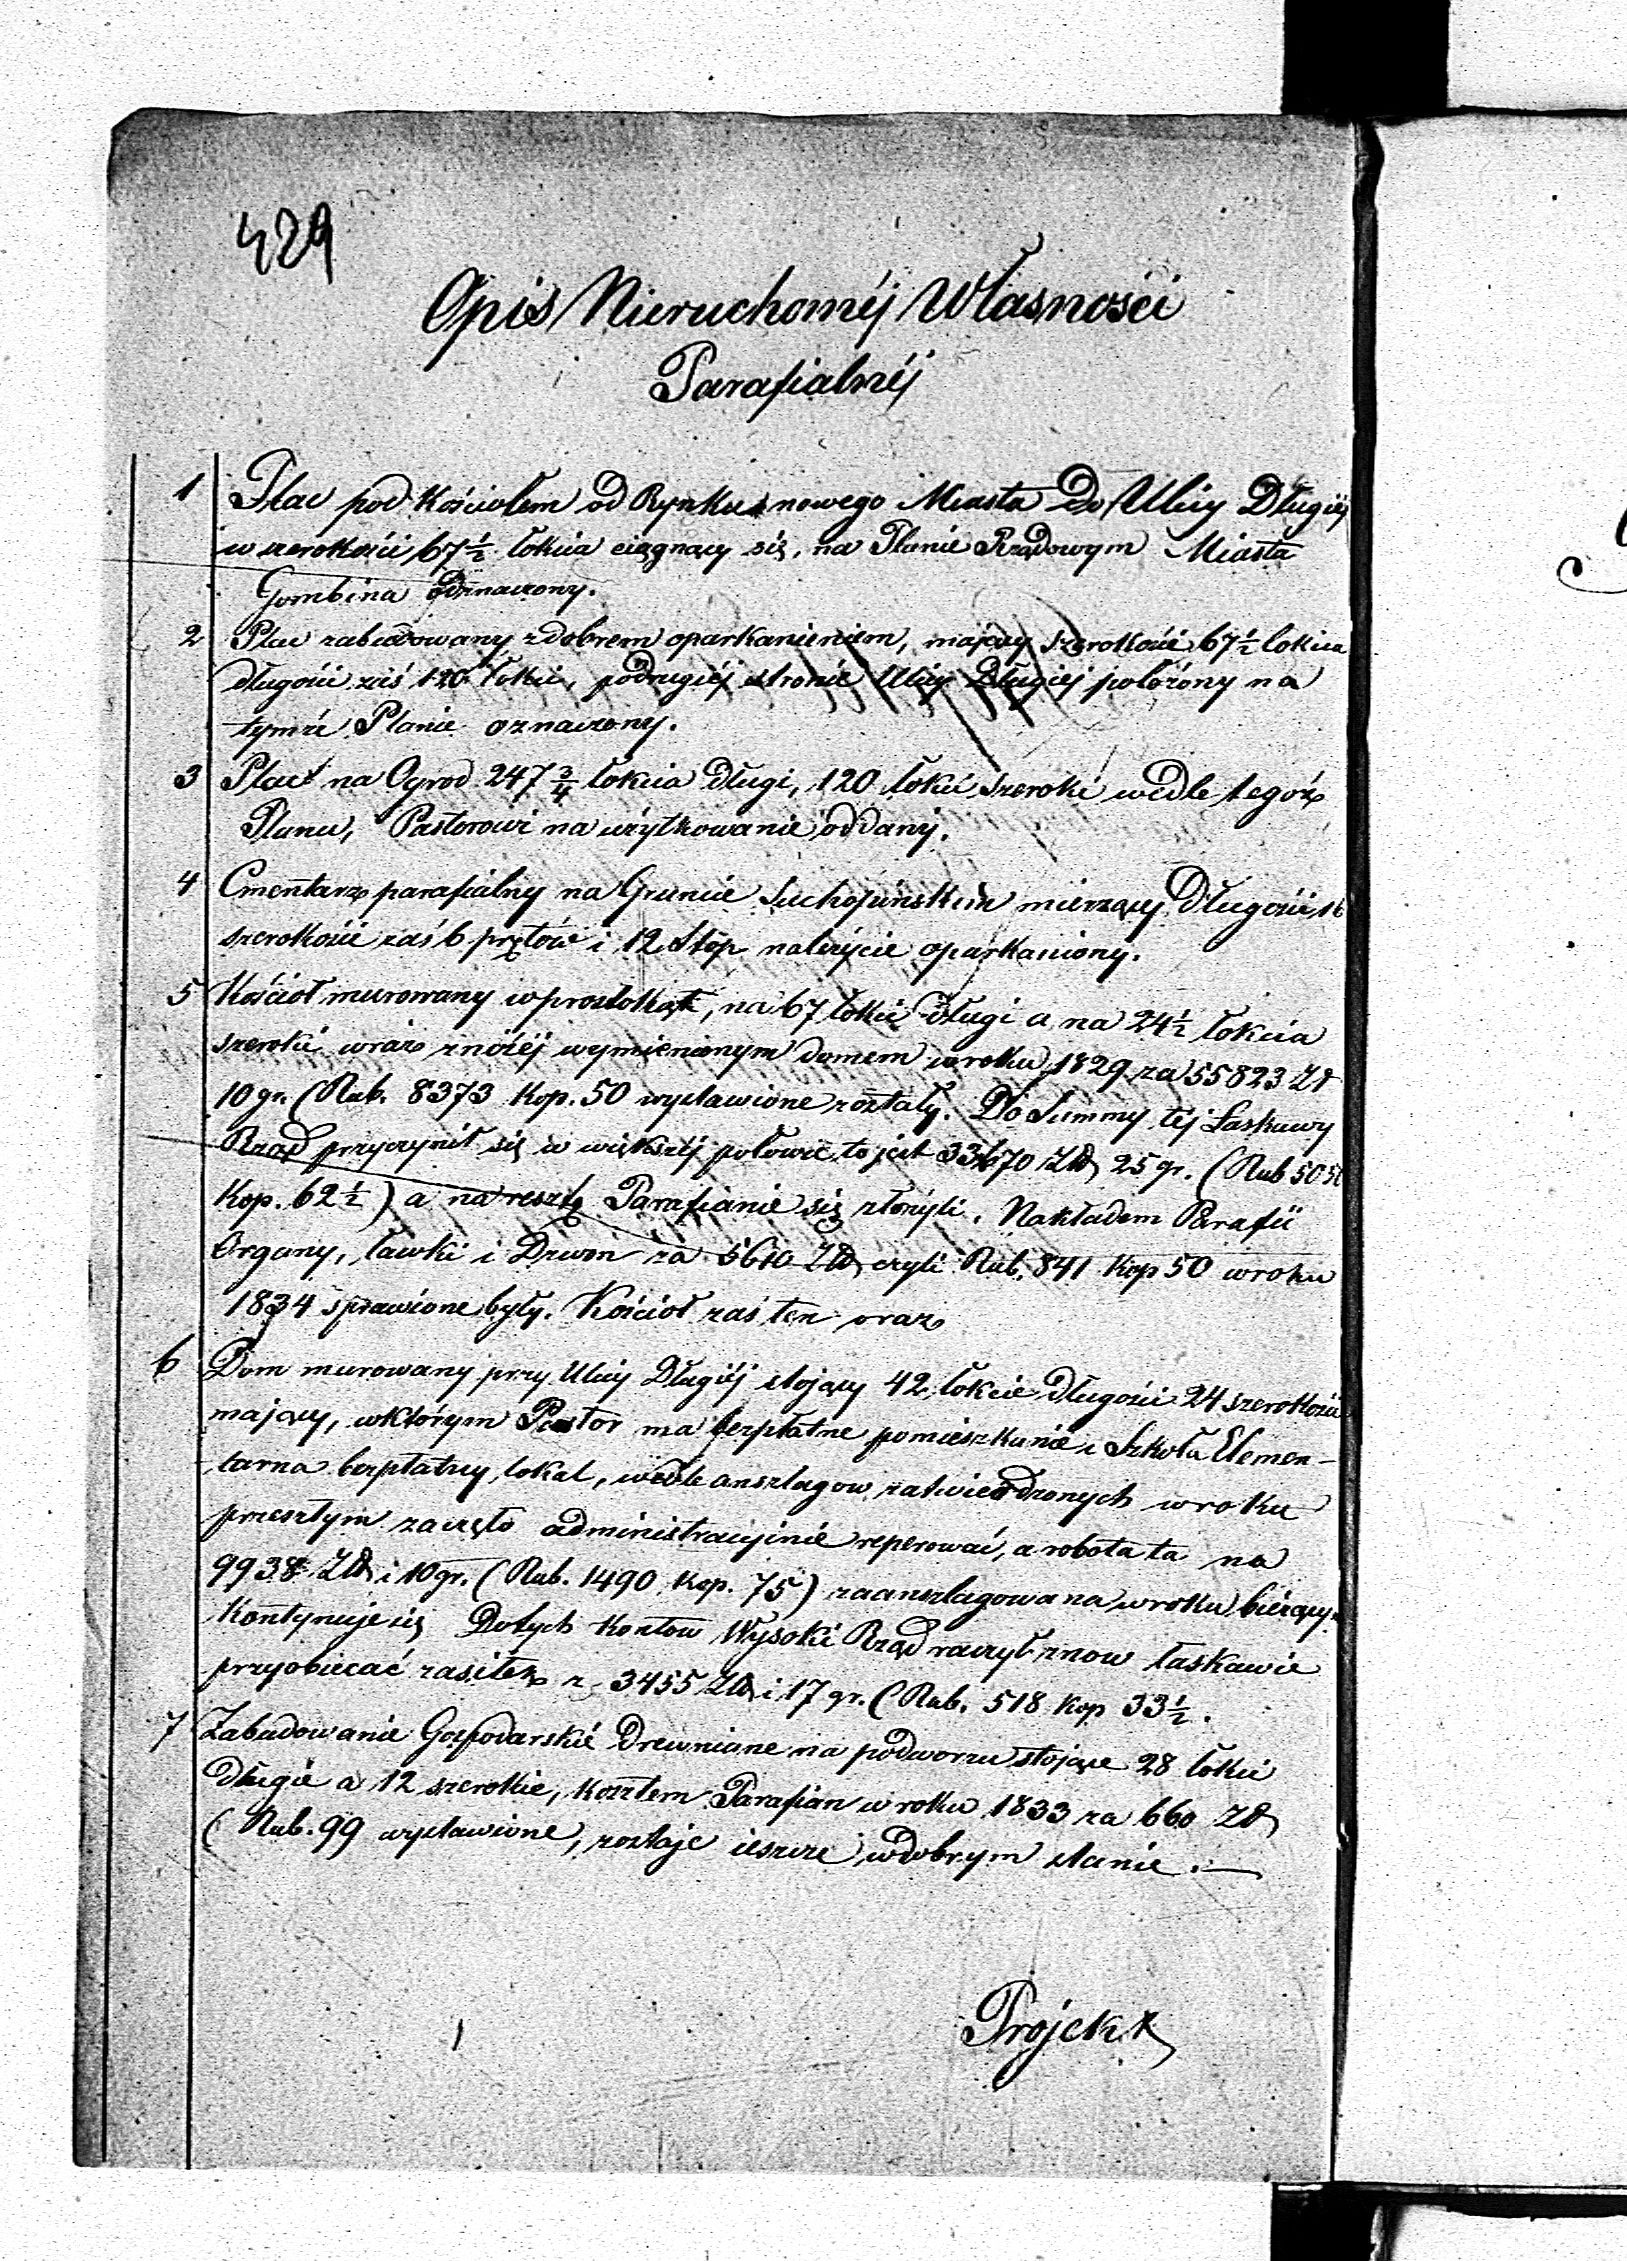 429
Opis Nieruchoméj Własności
Parafialnéj
1 Plac pod Kościołem od Rynku nowego Miasta do Ulicy Długiéj
w szerokości 67½ łokcia ciągnący się, na Planie Rządowym Miasta
Gombina oznaczony.
2 Plac zabudowany z dobrem oparkanieniem, mający szerokości 67½ łokcia
długości zaś 120 łokci, po drugiéj stronie Ulicy Długiéj położony na
tymże Planie oznaczony.
3 Plac na Ogrod 247¾ łokcia długi, 120 łokci szeroki wedle tegoż
Planu, Pastorowi na użytkowanie oddany.
4 Cmentarz parafialny na Gruncie mierzący Długości 16
szerokości zaś 6 prętów i 12 stóp należycie oparkaniony.
5 Kościoł murowany w prostokąt, na 67 łokci długi a na 24½ łokcia
szeroki wraz z niżéj wymienionym domem w roku 1829 za 55823 Zł
10 gr. (Rub. 8373 Kop. 50 wystawione zostały. Do Summy téj Łaskawy
Rząd przyczynił się w większéj połowie to jest 33670 Zł 25 gr. (Rub 5050
Kop. 62½) a na resztę Parafianie się złożyli. Nakładem Parafii
Organy, ławki i Dzwon za 5610 Zł czyli Rub. 841 Kop 50 w roku
1834 sprawione były. Kościoł zaś ten oraz
6 Dom murowany przy Ulicy Długiéj stojący 42 łokcie długości 24 szerokości
mający, w którym Pastor ma bezpłatne pomieszkanie i Szkoła Elemen-
tarna bezpłatny lokal, wedle anszlagow zatwierdzonych w roku
przeszłym zaczęto administracyjnie reperować, a robota ta na
9938 Zł i 10 gr. (Rub. 1490 Kop. 75) zaanszlagowana w roku bieżącym
kontynuje się Do tych Kosztow Wysoki Rząd raczył znow łaskawie
przyobiecać zasiłek z 3455 Zł i 17 gr. (Rub. 518 Kop 33½.
7 Zabudowanie Gospodarskie Drewniane na podworzu stojące 28 łokci
długie a 12 szerokie, kosztem Parafian w roku 1833 za 660 Zł
(Rub. 99 wystawione, zostaje ieszcze w dobrym stanie.—
Projekt